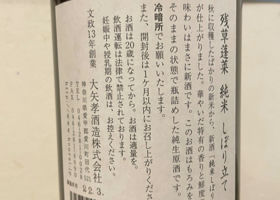 残草蓬莱 純米 しぼり立て
秋に収穫したばかりの新米から、新酒「純米しぼり
が仕上がりました。華やかで特有の香りと鮮度
味わいはまさに新酒です。このお酒はもろみを
そのままの状態で瓶詰めした純生原酒です。
冷暗所でお願いいたします。
また、開封後は1ケ月以内にお召し上がりくださ
お酒は20歳になってから。お酒は適量を。
飲酒運転は法律で禁止されております。
妊娠中や授乳期の飲酒は、お控えください。
文政13年創業
大矢孝酒造株式会社
神奈川県愛甲郡愛川町田代521
22.3.